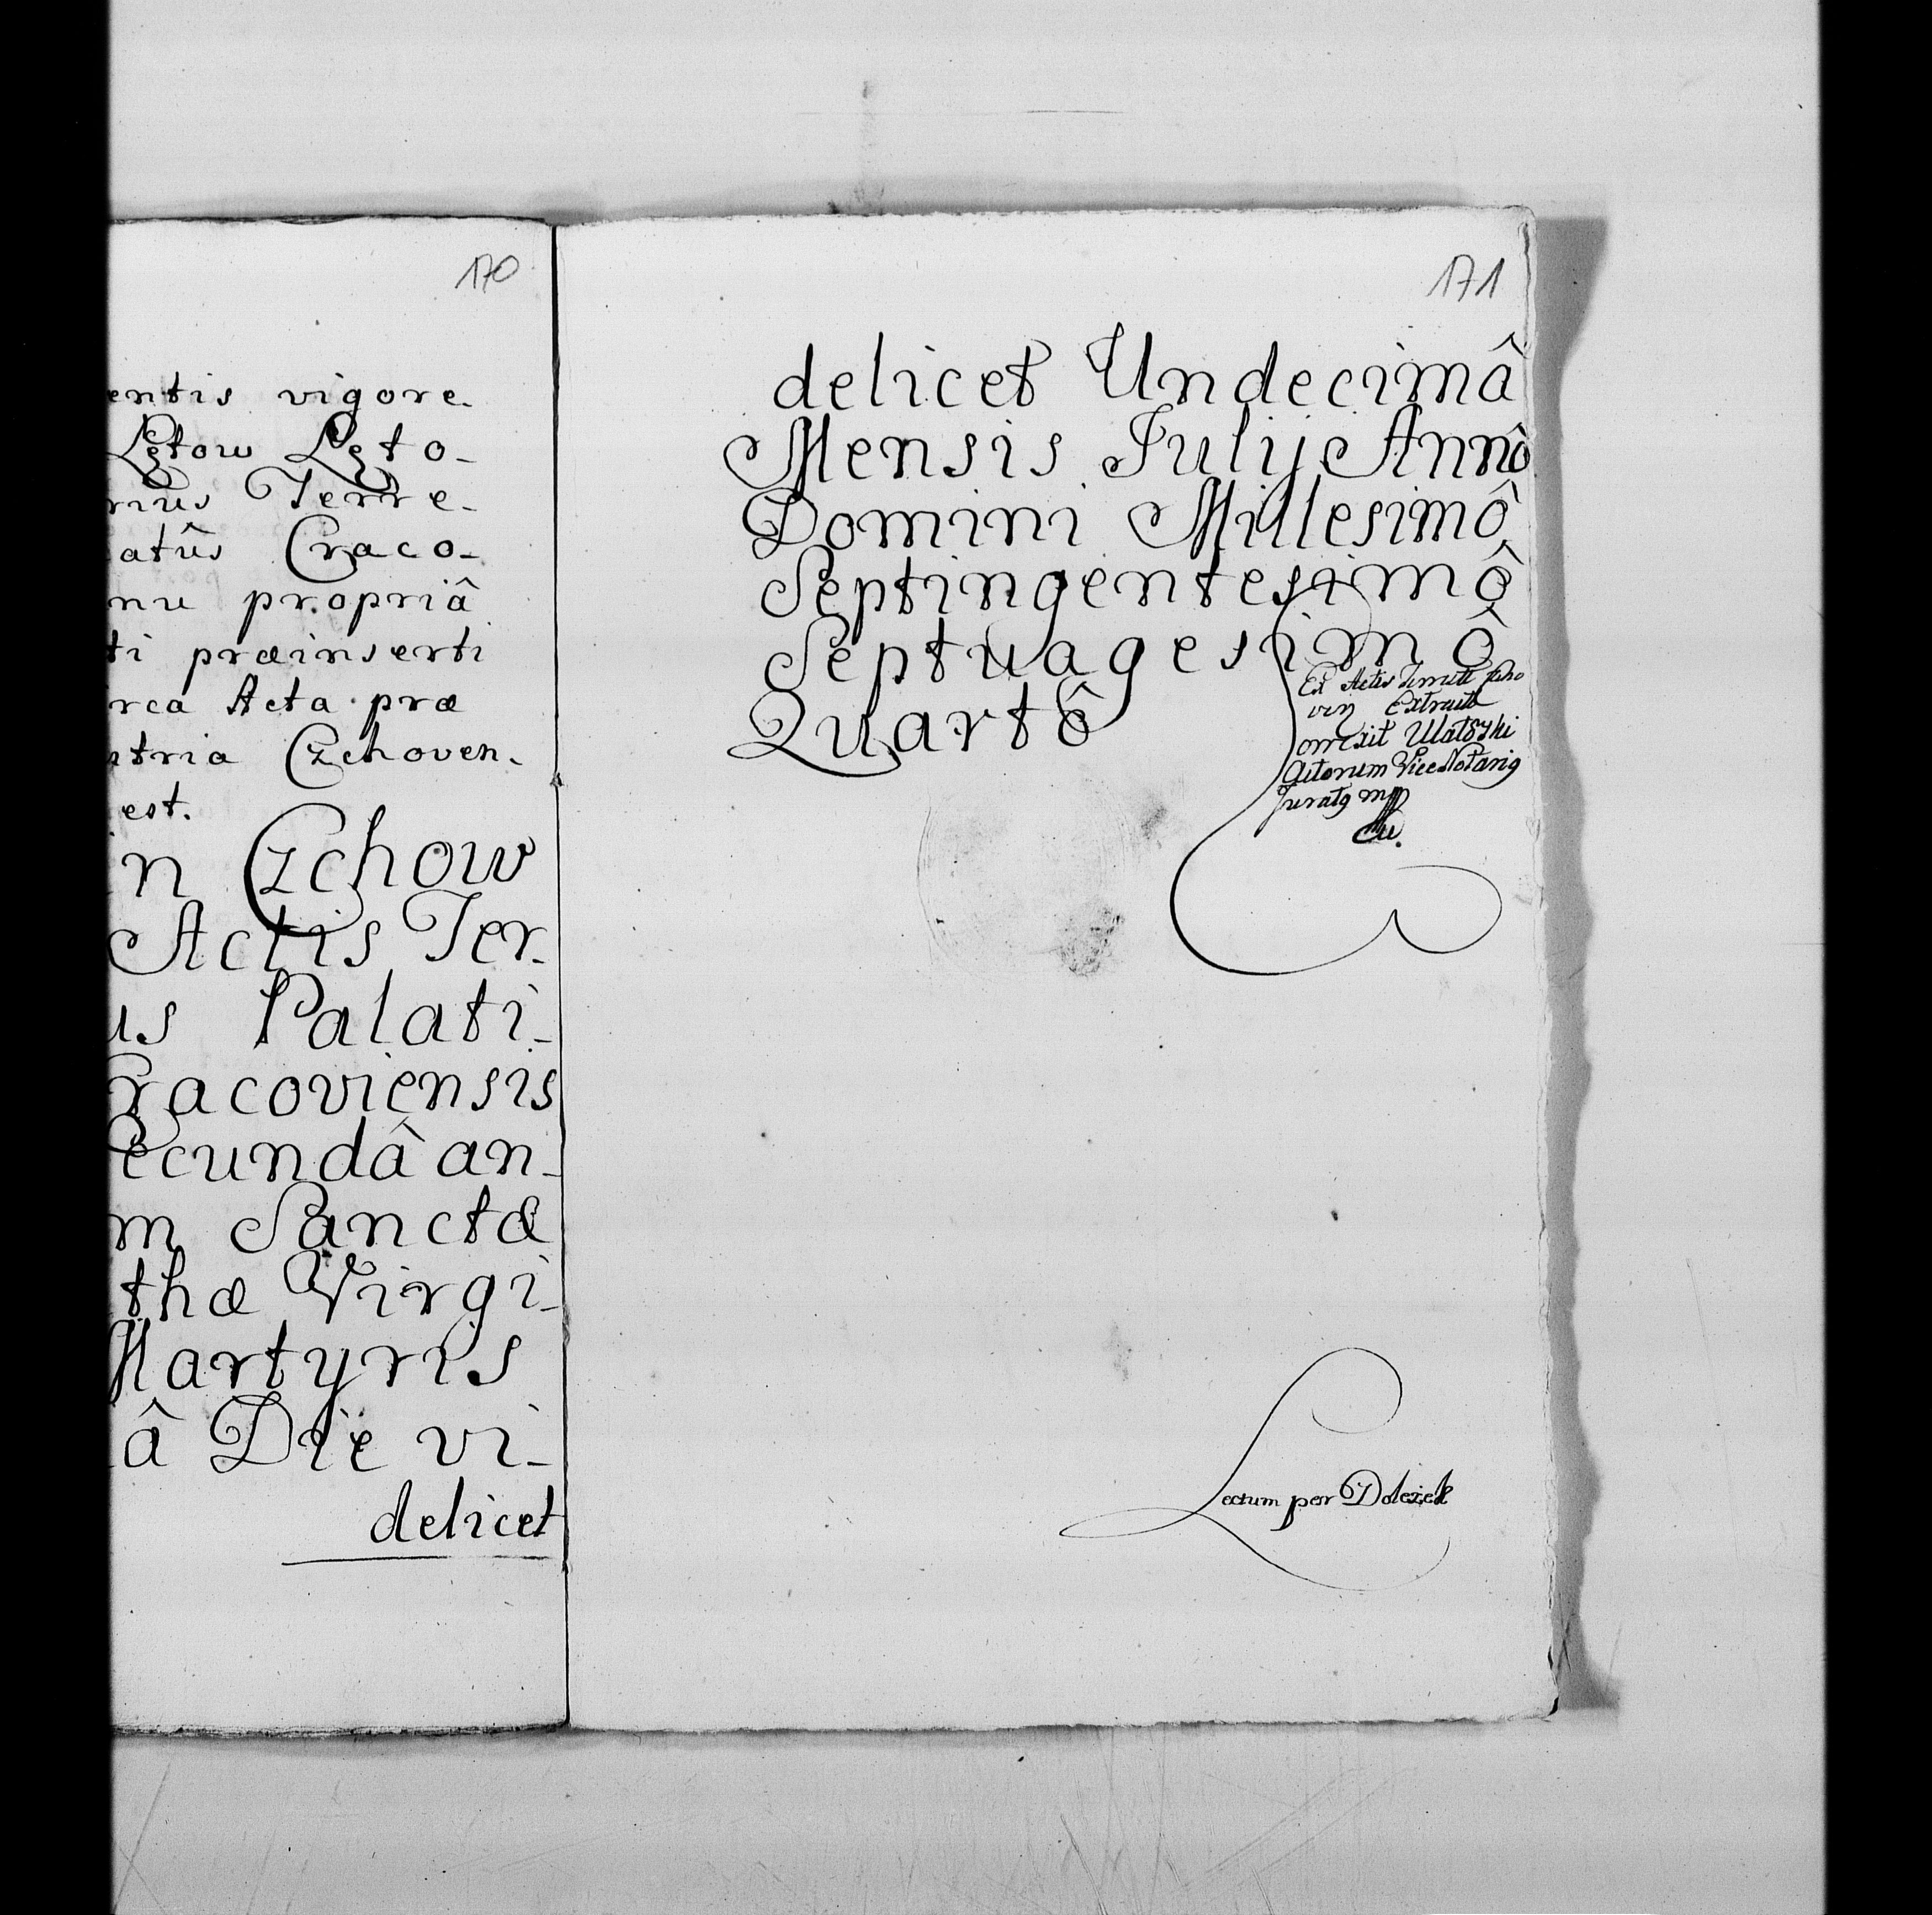 170
entis vigore
Lętow Lęto-
rius Terre-
atûs Craco-
nu propriâ
ti præinserti
rca Acta præ
stria Czchoven.
est.
in Czchow
Actis Ter-
us Palati-
racoviensis
ecundâ an-
m Sanctæ
thæ Virgi-
Martyris
â Die vi-
delicet
171
delicet Undecimâ
Mensis Julij Annô
Domini Millesimô
Septingentesimô
Septuagesimô
Quartô
Ex Actis
Extractu
Vice Notarig
Juratg mpp
Lectum per Dolezek